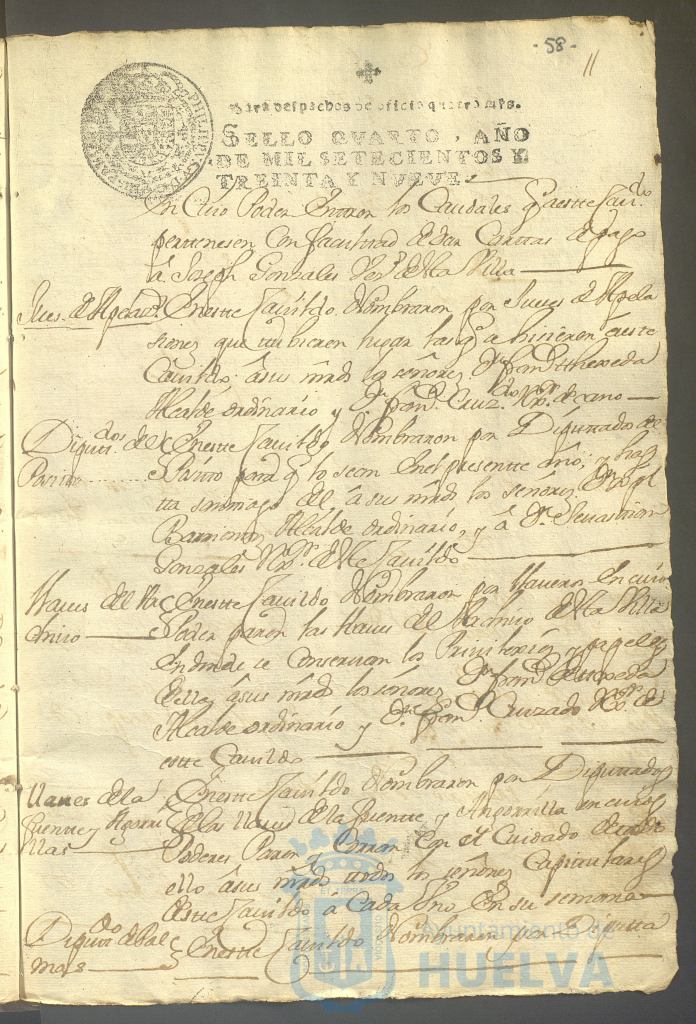 -58-
11
Para despachos de oficio quatro mrs.
SELLO QVARTO, AÑO
DE MIL SETECIENTOS Y
TREINTA Y NVEVE.
En Cuio Poder Entren los Caudales q̃ a estte Cavildo
perttenesen Con facultad de dar Cartas de pago
â Joseph Gonzales de esta Villa
Jues. de Apelaz.
En estte Cavildo Nombraron por Jueses de Apela
siones que tubieren lugar las q̃ a hisieren a estte
Cavildo, â sus mrds los señores Dn
Alcalde ordinario y Dn
Diputtdos del
Partto
En estte Cavildo Nombraron por Diputtados del
para q̃ lo sean En el presentte año, y
tta santtiago de el â sus mrds los señores
Alcalde ordinario, y â Dn Sevastian
Gonzales de estte Cavildo
Llaves del Ar
chivo
En estte Cavildo Nombraron por llaveros En cuio
Poder paren las llaves del Archivo de esta Villa
En donde se Conservan los Privilexios y papeles
de ella â sus mrds los señores Dn
Alcalde ordinario y Dn Cruzado de
estte Cavildo
Llaves de la
fuente y Agorri
llas
En estte Cavildo Nombraron por Diputtados
de las llaves de la fuente y Angorrilla en cuios
Poderes Paren y Corran Con el Cuidado de
ello â sus mrds todos los señores Capitulares
de estte Cavildo a Cada Uno En su semana
Diputtdo de Pal
mas
En estte Cavildo Nombraron por Diputta
Ayuntamiento de
HUELVA